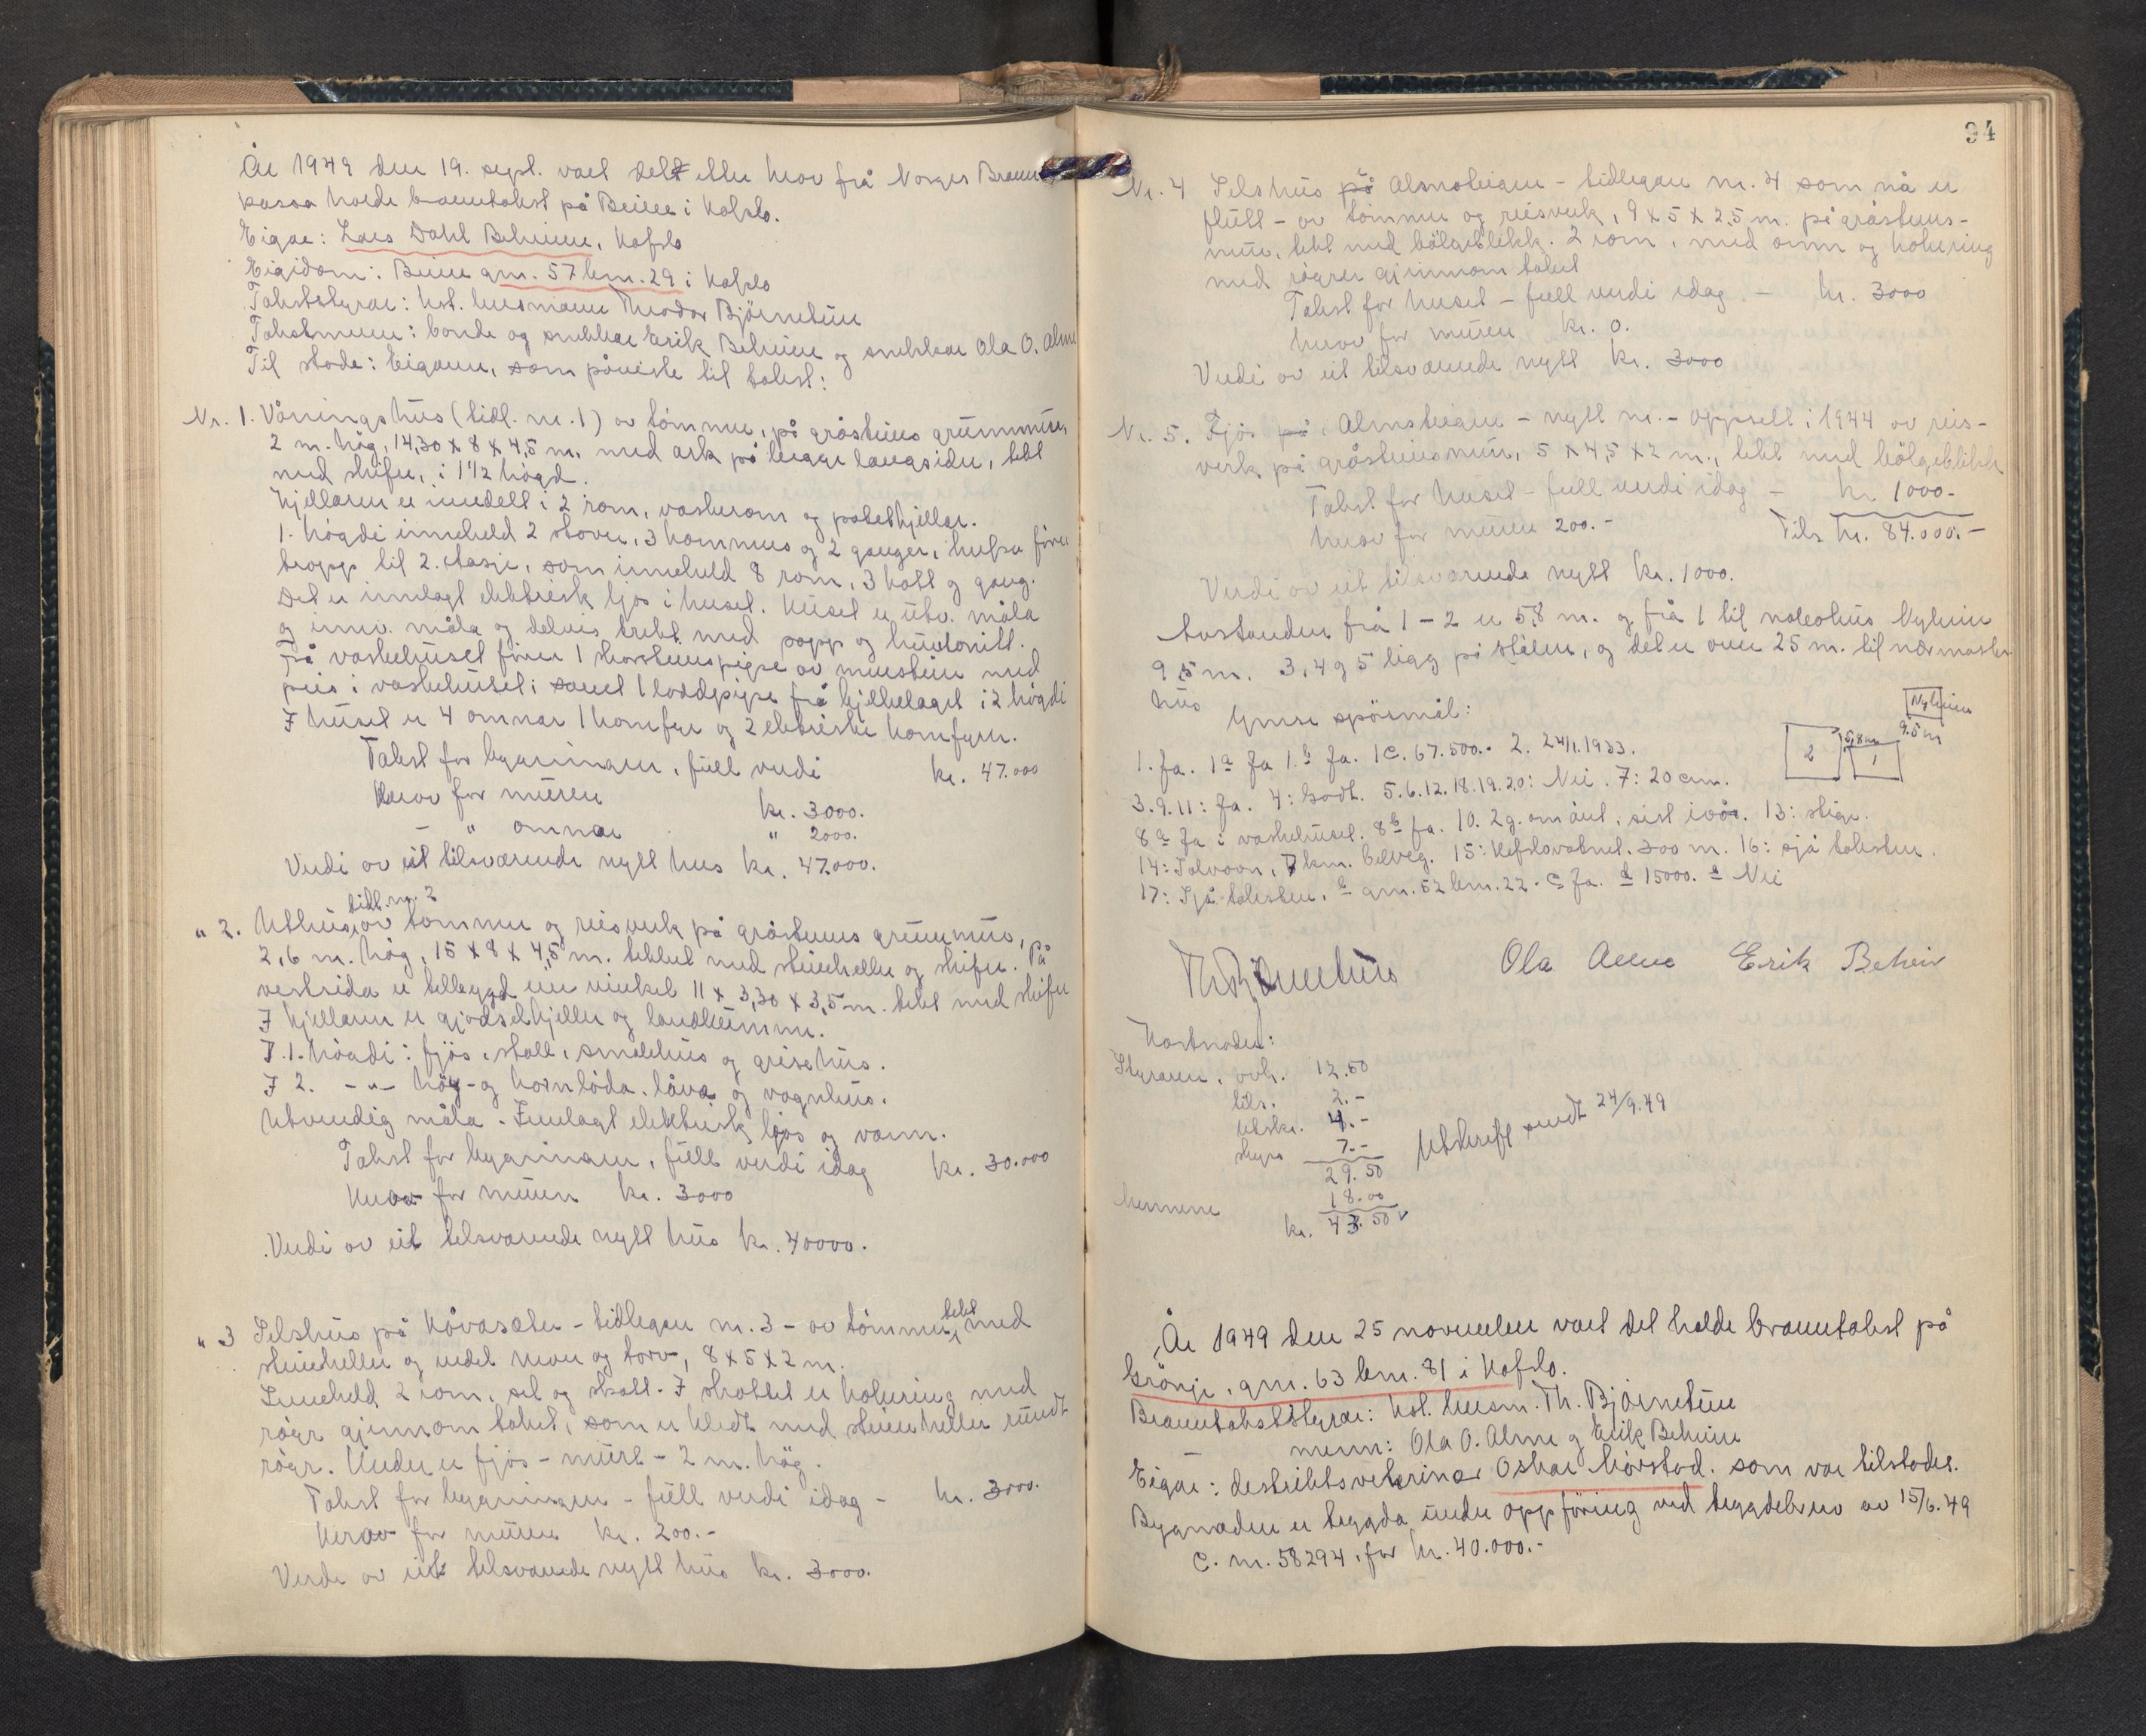 År 1949 den 19. sept. vart delt etter krav frå Norges Brann
kassa halde branntakst på Beheim i Hafslo.
Eigar: Lars Dahl Beheim, Hafslo
Eigedom: Beim gnr. 57 bnr. 29 i Hafslo
Takststyrar: kst. lensmann Theodor Bjørnetun
Takstmenn: bonde og snekkar Erik Beheim og snekkar Ola O. Alme
Til stade: Eigaren, som påviste til takst:
Nr. 1. Våningshus (tidl. nr. 1) av tømmer, på gråsteins grunnmur,
2 m. høg, 14,30 x 8 x 4,5 m. med ark på begge langsider, tekt
med skifer, i 1 1/2 høgd.
Kjellaren er inndelt i 2 rom, vaskerom og potetkjellar.
1. høgdi inneheld 2 stover, 3 kammers og 2 ganger, trapp fører
opp til 2. etasje, som inneheld 8 rom, 3 kott og gang.
Det er innlagt elektrisk ljos i huset. Huset er utv. måla
og innv. måla og delvis trekt med papp og huntonitt.
På vaskehuset finn 1 skorsteinspipe av murstein med
peis i vaskehuset; samt 1 loddpipe frå bjelkelaget i 2 høgdi
I huset er 4 omnar 1 komfyr og 2 elektriske komfyrer.
Takst for bygningen, full verdi kr. 47.000
Herav for muren kr. 3000.
- " omnar " 2000.
Verdi av eit tilsvarende nytt hus kr. 47.000.
tidl. nr. 2
" 2. Uthus, av tømmer og reisverk på gråsteins grunnmur,
2,6 m. høg, 15 x 8 x 4,5 m. tekket med steinheller og skifer. På
vestsida er tilbygd ein vinkel 11 x 3,30 x 3,5 m. tekt med skifer
I kjellaren er gjødselkjeller og landkumme.
I 1. høgdi: fjøs, stall, smalehus og grisehus.
I 2. -"- høy- og kornlöda, låve og vognhus.
Utvendig måla. Innlagt elektrisk ljos og vann.
Takst for bygningen, full verdi idag kr. 30.000
Herav for muren kr. 3000
Verdi av eit tilsvarende nytt hus kr. 40000.
" 3 Selshus på Håvasæter - tidlegare nr. 3 - av tømmer, tekt med
steinheller og endel never og torv, 8 x 5 x 2 m.
Inneheld 2 rom, sel og skott. I skottet er kokering med
røyr gjennom taket, som er kledt med steinheller rundt
røyr. Under er fjøs - murt - 2 m. høg.
Takst for bygningen - full verdi idag - kr. 3000.
Herav for muren kr. 200.-
Verde av eit tilsvarende nytt hus kr. 3000.
94
Nr. 4 Selshus på Almsteigen - tidlegare nr. 4 som nå er
flutt - av tømmer og reisverk, 9 x 5 x 2,5 m. på gråsteins-
mur, tekt med bølgeblikk. 2 rom, med omn og kokering
med røyrer gjennom taket
Takst for huset - full verdi idag - kr. 3000
herav for muren kr. 0.
Verdi av eit tilsvarende nytt kr. 3000
Nr. 5. Fjøs på Almsteigen - nytt nr. - oppsett i 1944 av reis-
verk på gråsteinsmur, 5 x 4,5 x 2 m., tekt med bølgeblikk
Takst for huset - full verdi idag - kr 1000.-
herav for muren 200.- Tils kr. 84.000.-
Verdi av eit tilsvarende nytt kr. 1000.
Avstanden frå 1 - 2 er 5,8 m. og frå 1 til naboshus Nyheim
9,5 m. 3, 4 og 5 ligg på stølen, og det er over 25 m. til nærmaste
hus
Ymse spörsmål:
Nyheim
9.5 m
5,8 m
2
1
1. Ja. 1a Ja 1.b Ja. 1c. 67.500.- 2. 24/1.1933.
3.9.11: Ja. 4: Godt. 5.6.12.18.19.20: Nei. 7: 20 cm.
8a Ja i vaskehuset. 8b Ja. 10. 2 g. om året, sist i vår. 13: stige.
14: Solvorn, 7 km. bilveg. 15: Hafslovatnet. 300 m. 16: sjå taksten.
17: Sjå taksten, b gnr. 52 bnr. 22. c Ja. d 15000. e Nei
Th Bjørnetun Ola Alme Erik Beheim
Kostnader:
Styraren, voh. 12.50
tils. 2.-
Utskr. 4.-
skyss 7.-
29.50
Mennene 18.00
kr. 43.50
Utskrift sendt 24/9.49
År 1949 den 25 november vart det halde branntakst på
Grönje, gnr. 63 bnr. 81 i Hafslo.
Branntakststyrar: kst. lensm. Th. Bjørnetun
- menn: Ola O. Alme og Erik Beheim
Eigar: distriktsveterinær Oskar Mørstad. som var tilstades.
Bygnaden er trygda under oppföring ved trygdebrev av 15/6.49
C. nr. 58294. for kr. 40.000.-